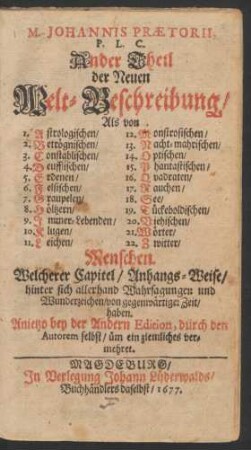 M. JOHANNIS PRÆTORII,
P. L. C.
Ander Theil
der Neuen
Welt-Beschreibung/
Als von
1. Astrologischen/
2. Betrögnischen/
3. Constablischen/
4. Deufflischen/
5. Erdenen/
6. Felsischen/
7. Graupelen/
8. Höltzern/
9. Immer-Lebenden/
10. Klugen/
11. Leichen/
12. Monstrosischen/
13. Nacht-mährischen/
14. Optischen/
15. Phantastischen/
16. Quadranten/
17. Rauchen/
18. See/
19. Tückeboldischen/
20. Viehischen/
21. Wörter/
22. Zwitter/
Menschen.
Welcherer Capitel/ Anhangs-Weise/
hinter sich allerhand Wahrsagungen und
Wunderzeichen/ von gegenwärtiger Zeit/
haben.
Anietzo bey der Andern Edition, durch den
Autorem selbst/ üm ein ziemliches ver-
mehret.
MAGDEBURG/
In Verlegung Johann Lüderwalds/
Buchhändlers daselbst/ 1677.